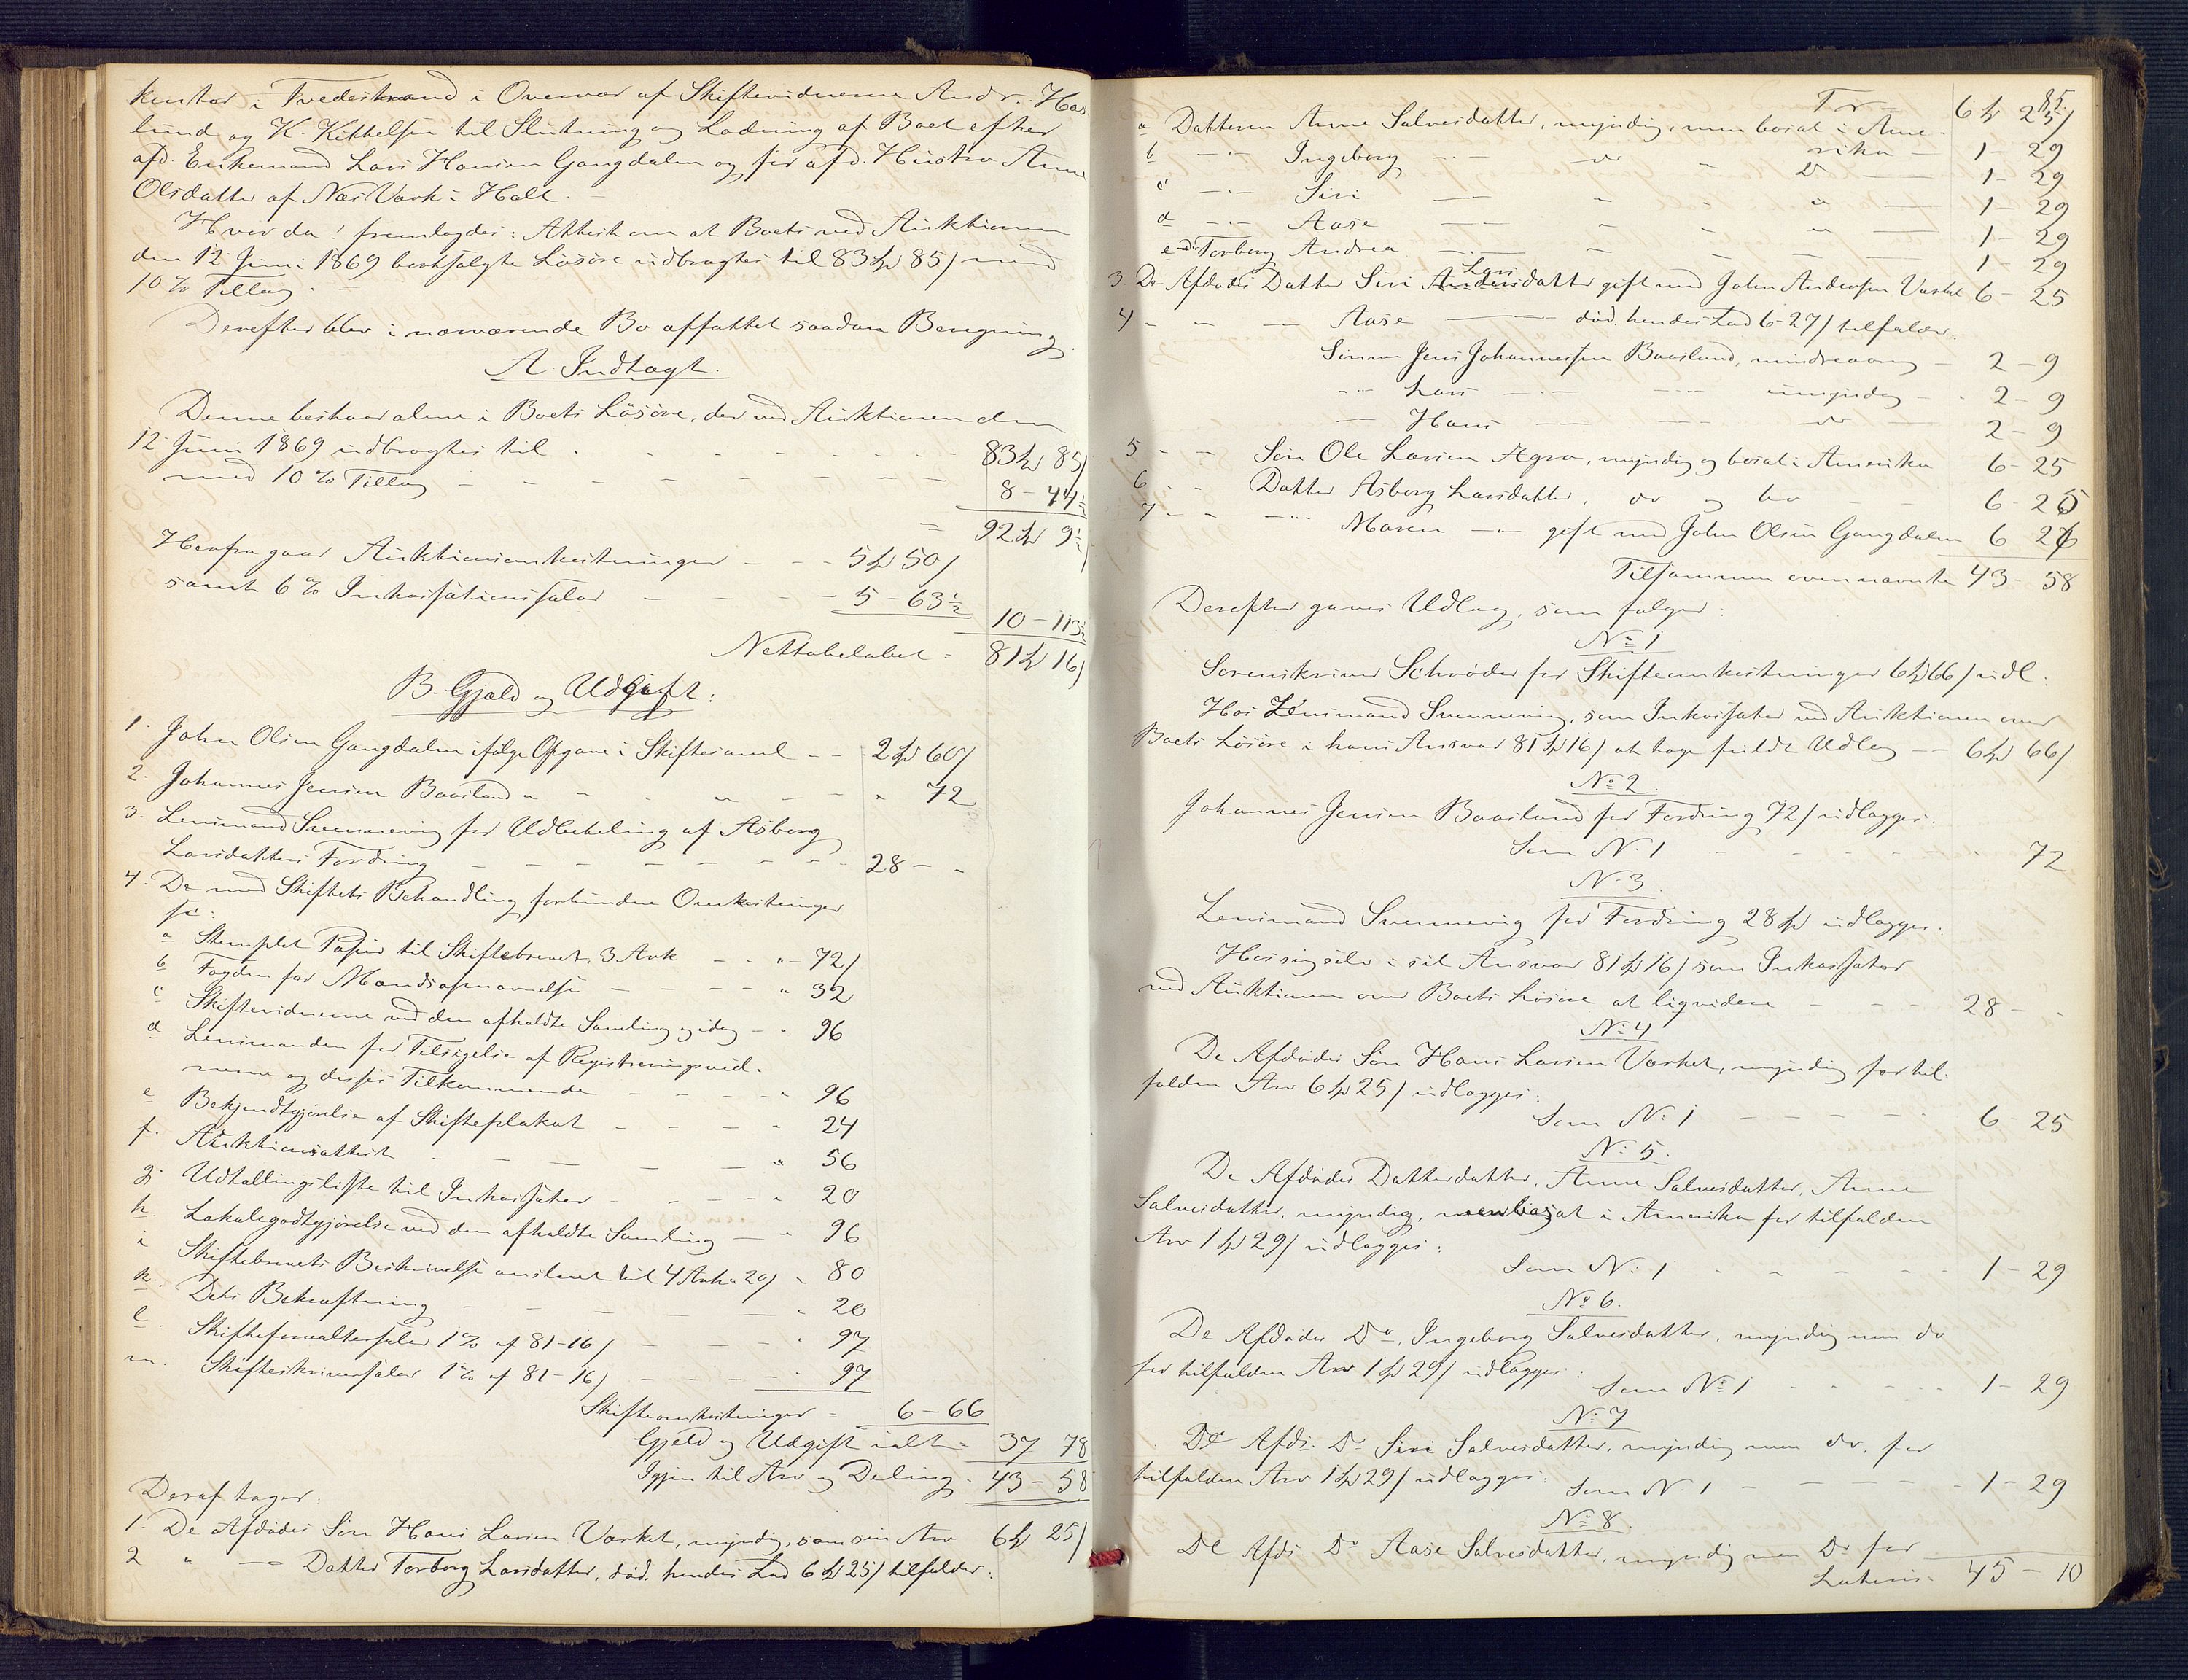 kontor i Tvedestrand i Overvær af Skiftevidnerne Andr. Has
lund og K. Kittelsen til Slutning og Lodning af Boet efter
afd. Enkemand Lars Hansen Gangdalen og før afd. Hustro Anne
Olsdatter af Næs Værk i Holt.
Hvorda: fremlagdes: Attest om at Boets ved Auktionen
den 12 Juni 1869 bortsolgte Løsøre udbragtes til 83 Spd 85 / med
10 % Tillæg.
Derefter blev i nærværende Bo affattet saadan Beregning
A. Indtægt.
Denne bestaar alene i Boets Løsøre, der ved Auktionen den
12 Juni 1869 udbragtes til - - - 83 Spd 85 /
med 10 % Tillæg - - - 8 - 44½
= 92 Spd 9½
Herfra gaar Auktionsomkostninger - - - 5 Spd 50 /
samt 6 % Inkassationssalær - - - 5 - 63½
10 - 113½
Nettobeløbet = 81 Spd 16 /
B. Gjæld og Udgift:
1. John Olsen Gangdalen ifølge Opgave i Skiftesaml - - 2 Spd 60 /
2. Johannes Jensen Baasland " - " - - " 72
3. Lensmand Svennevig for Udbetaling af Asborg
Larsdatters Fordring - - - 28 - -
4. De med Skiftets Behandling forbundne Omkostninger
a Stemplet Papir til Skiftebrevet, 3 Ark - - " - 72 /
b Fogden for Mandsopnævnelse - - - " 32
c Skiftevidnerne ved den afholdte Samling og idag - " 96
d Lensmanden for Tilsigelse af Registreringsvid-
nerne og disses Tilkommende - - - " 96
e Bekjendtgjørelse af Skifteplakat - - - 24
f. Auktionsattest - - - " 56
g. Udtællingsliste til Inkassator - - - " 20
h. Lokalegodtgjørelse ved den afholdte Samling - " 96
i Skiftebrevets Beskrivelse anslaaet til 4 Ark a 20 / " 80
k. Dets Bekræftning - - - " 20
l. Skifteforvaltersalær 1 % af 81 - 16 / - - - " 97
m. Skifteskriversalær 1 % af 81 - 16 / - - - " 97
Skifteomkostninger = 6 - 66
Gjæld og Udgift ialt = 37 78
Igjen til Arv og Deling = 43 - 58
Deraf tager:
1. De Afdødes Søn Hans Larsen Værket, myndig, som sin Arv 6 Spd 25 /
2 " - Datter Torborg Larsdatter, død. hendes Lod 6 Spd 25 / tilfalder:
85.
Tr. 6 Spd 25 /
a Datteren Anne Salvesdatter, myndig, men bosat i Ame-
rika - 1 - 29
b - " - Ingeborg - " - do - Do - 1 - 29
c - " - Siri - - - " - 1 - 29
d - " - Aase - - - " - 1 - 29
e - Torborg Andrea - - - - 1 - 29
3. De Afdødes Datter Siri Lars Andersdatter gift med John Andersen Værket 6 - 25
4 - - - Aase - død. hendes Lod 6 - 27 / tilfalder
Sønnen Jens Johannessen Baasland, mindreaarig - 2 - 9
- " - Lars - " - - " - umyndig - - 2 - 9
- Hans - - - do - 2 - 9
5 - - Søn Ole Larsen Agra, myndig og bosat i Amerika 6 - 25
6 - - Datter Asborg Larsdatter, do og do - 6 - 26
7 - - - " - Maren - " - gift med John Olsen Gangdalen 6 26
Tilsammen ovennævnte 43 - 58
Derefter gaves Udlæg, som følger:
No 1
Sorenskriver Schrøder for Skifteomkostninger 6 Spd 66 / udl.
Hos Lensmand Svennevig, som Inkassator ved Auktionen over
Boets Løsøre i hans Ansvar 81 Spd 16 / at tage fuldt Udlæg - - 6 Spd 66 /
No 2.
Johannes Jensen Baasland for Fordring 72 / udlægges:
Som No 1 - - - 72
No 3.
Lensmand Svennevig for Fordring 28 Spd udlægges:
Hos sig selv i sit Ansvar 81 Spd 16 / som Inkassator
ved Auktionen over Boets Løsøre at liqvidere - - - 28 - -
No 4
De Afdødes Søn Hans Larsen Værket, myndig for til-
falden Arv 6 Spd 25 / udlægges:
Som No 1 - - - 6 - 25
No 5.
De Afdødes Datterdatter, Anne Salvesdatter, Anne
Salvesdatter, myndig, men bosat i Amerika for tilfalden
Arv 1 Spd 29 / udlægges:
Som No 1 - - - 1 - 29
No 6.
De Afdødes Do, Ingeborg Salvesdatter, myndig men do
for tilfalden Arv 1 Spd 29 / udlægges:
Som No 1 - - - 1 - 29
No 7
De Afds. Do Siri Salvesdatter, myndig men do, for
tilfalden Arv 1 Spd 29 / udlægges:
Som No 1 - - - 1 - 29
No 8.
De Afds Do Aase Salvesdatter, myndig men Do for
Lateris. 45 - 10